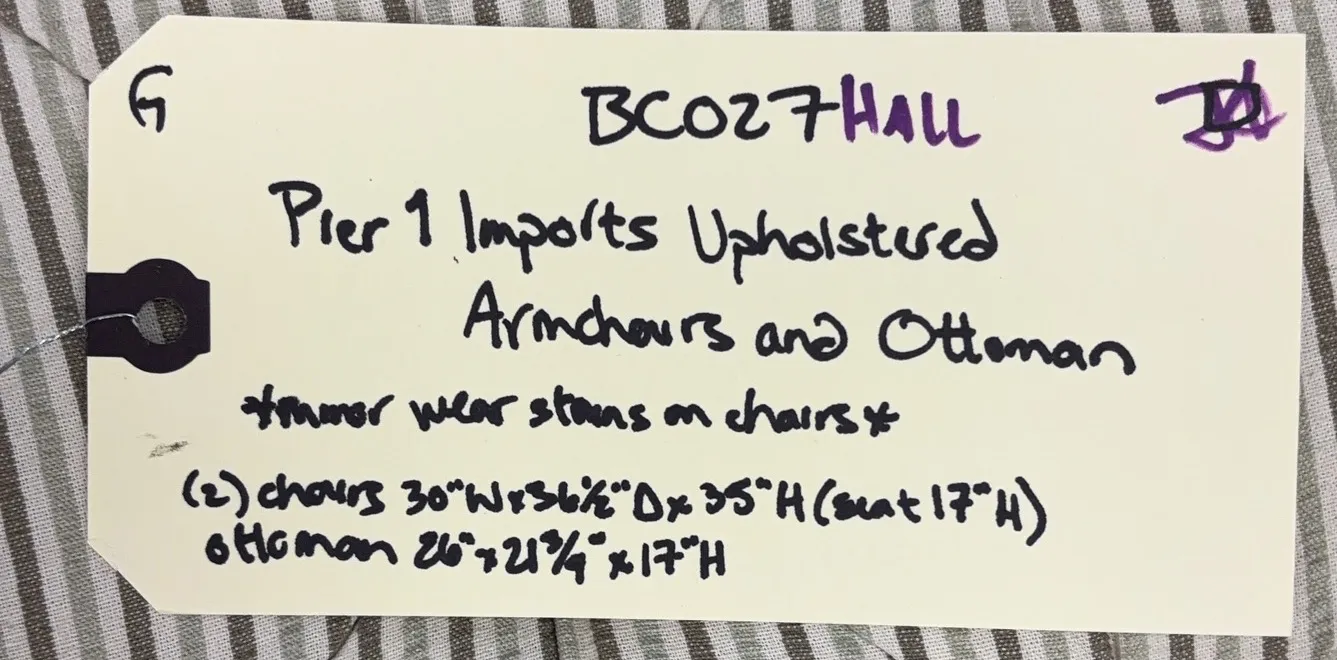 G BC027HALL D
Pier 1 Imports Upholstered
Armchairs and Ottoman
*minor wear stains on chairs*
(2) chairs 30"W x 36½" D x 35"H (seat 17"H)
ottoman 26" x 21¾" x 17"H